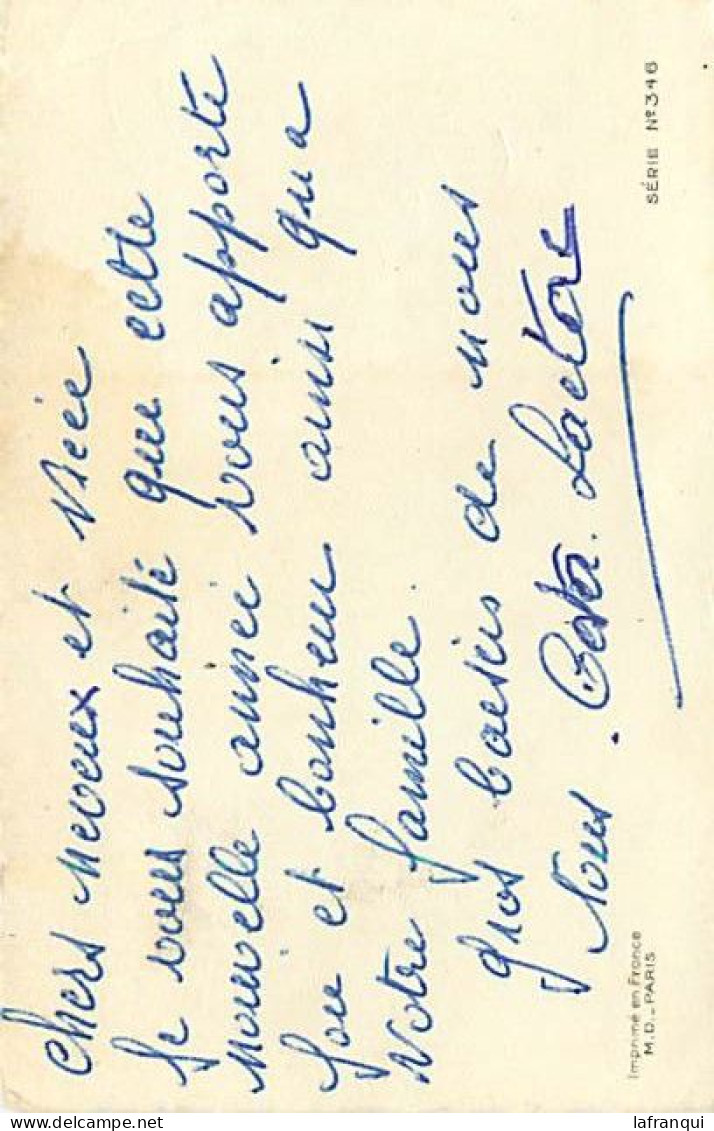 Chers neveux et Niéce
Je vous souhaité que cette
nouvelle année vous apporte
joie et bonheur ainsi qu a
Votre famille.
gros baisers de nous
Tous.
Imprimé en France
M.D. _ PARIS
SÉRIE Nº 346
lafranqui